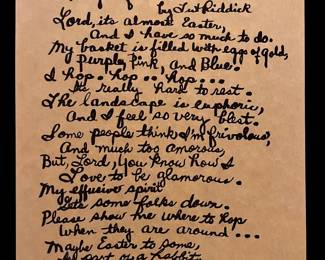 by Tut Riddick
Lord, its almost Easter,
And I have so much to do.
My basket is filled with eggs of gold,
Purple, Pink, and Blue.
I hop - hop - - hop . . .
Its really hard to rest.
The landscape is euphoric,
And I feel so very blest.
Some people think I'm frivolous,
And much too amorous,
But, Lord, you know how I
Love to be glamorous.
My effusive spirit
Lets some folks down.
Please show me where to hop
When they are around . . .
Maybe Easter to some,
of a Rabbit